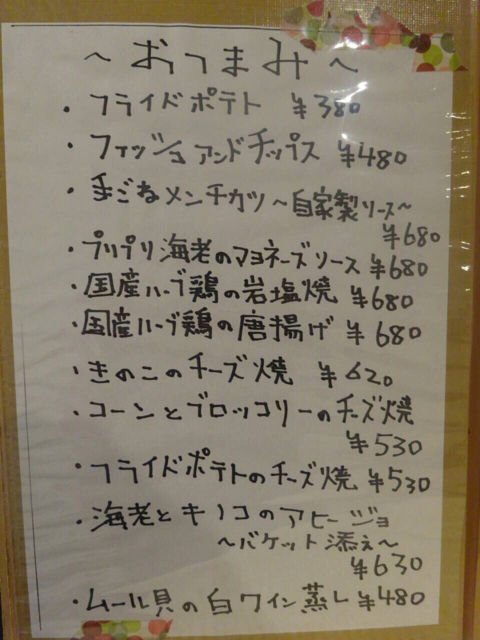 ～おつまみ～
・フライドポテト ¥380
・フィッシュアンドチップス ¥480
・手ごねメンチカツ～自家製ソース～
¥680
・プリプリ海老のマヨネーズソース ¥680
・国産ハーブ鶏の岩塩焼 ¥680
・国産ハーブ鶏の唐揚げ ¥680
・きのこのチーズ焼 ¥620
・コーンとブロッコリーのチーズ焼
¥530
・フライドポテトのチーズ焼 ¥530
・海老とキノコのアヒージョ
～バケット添え～
¥630
・ムール貝の白ワイン蒸し ¥480